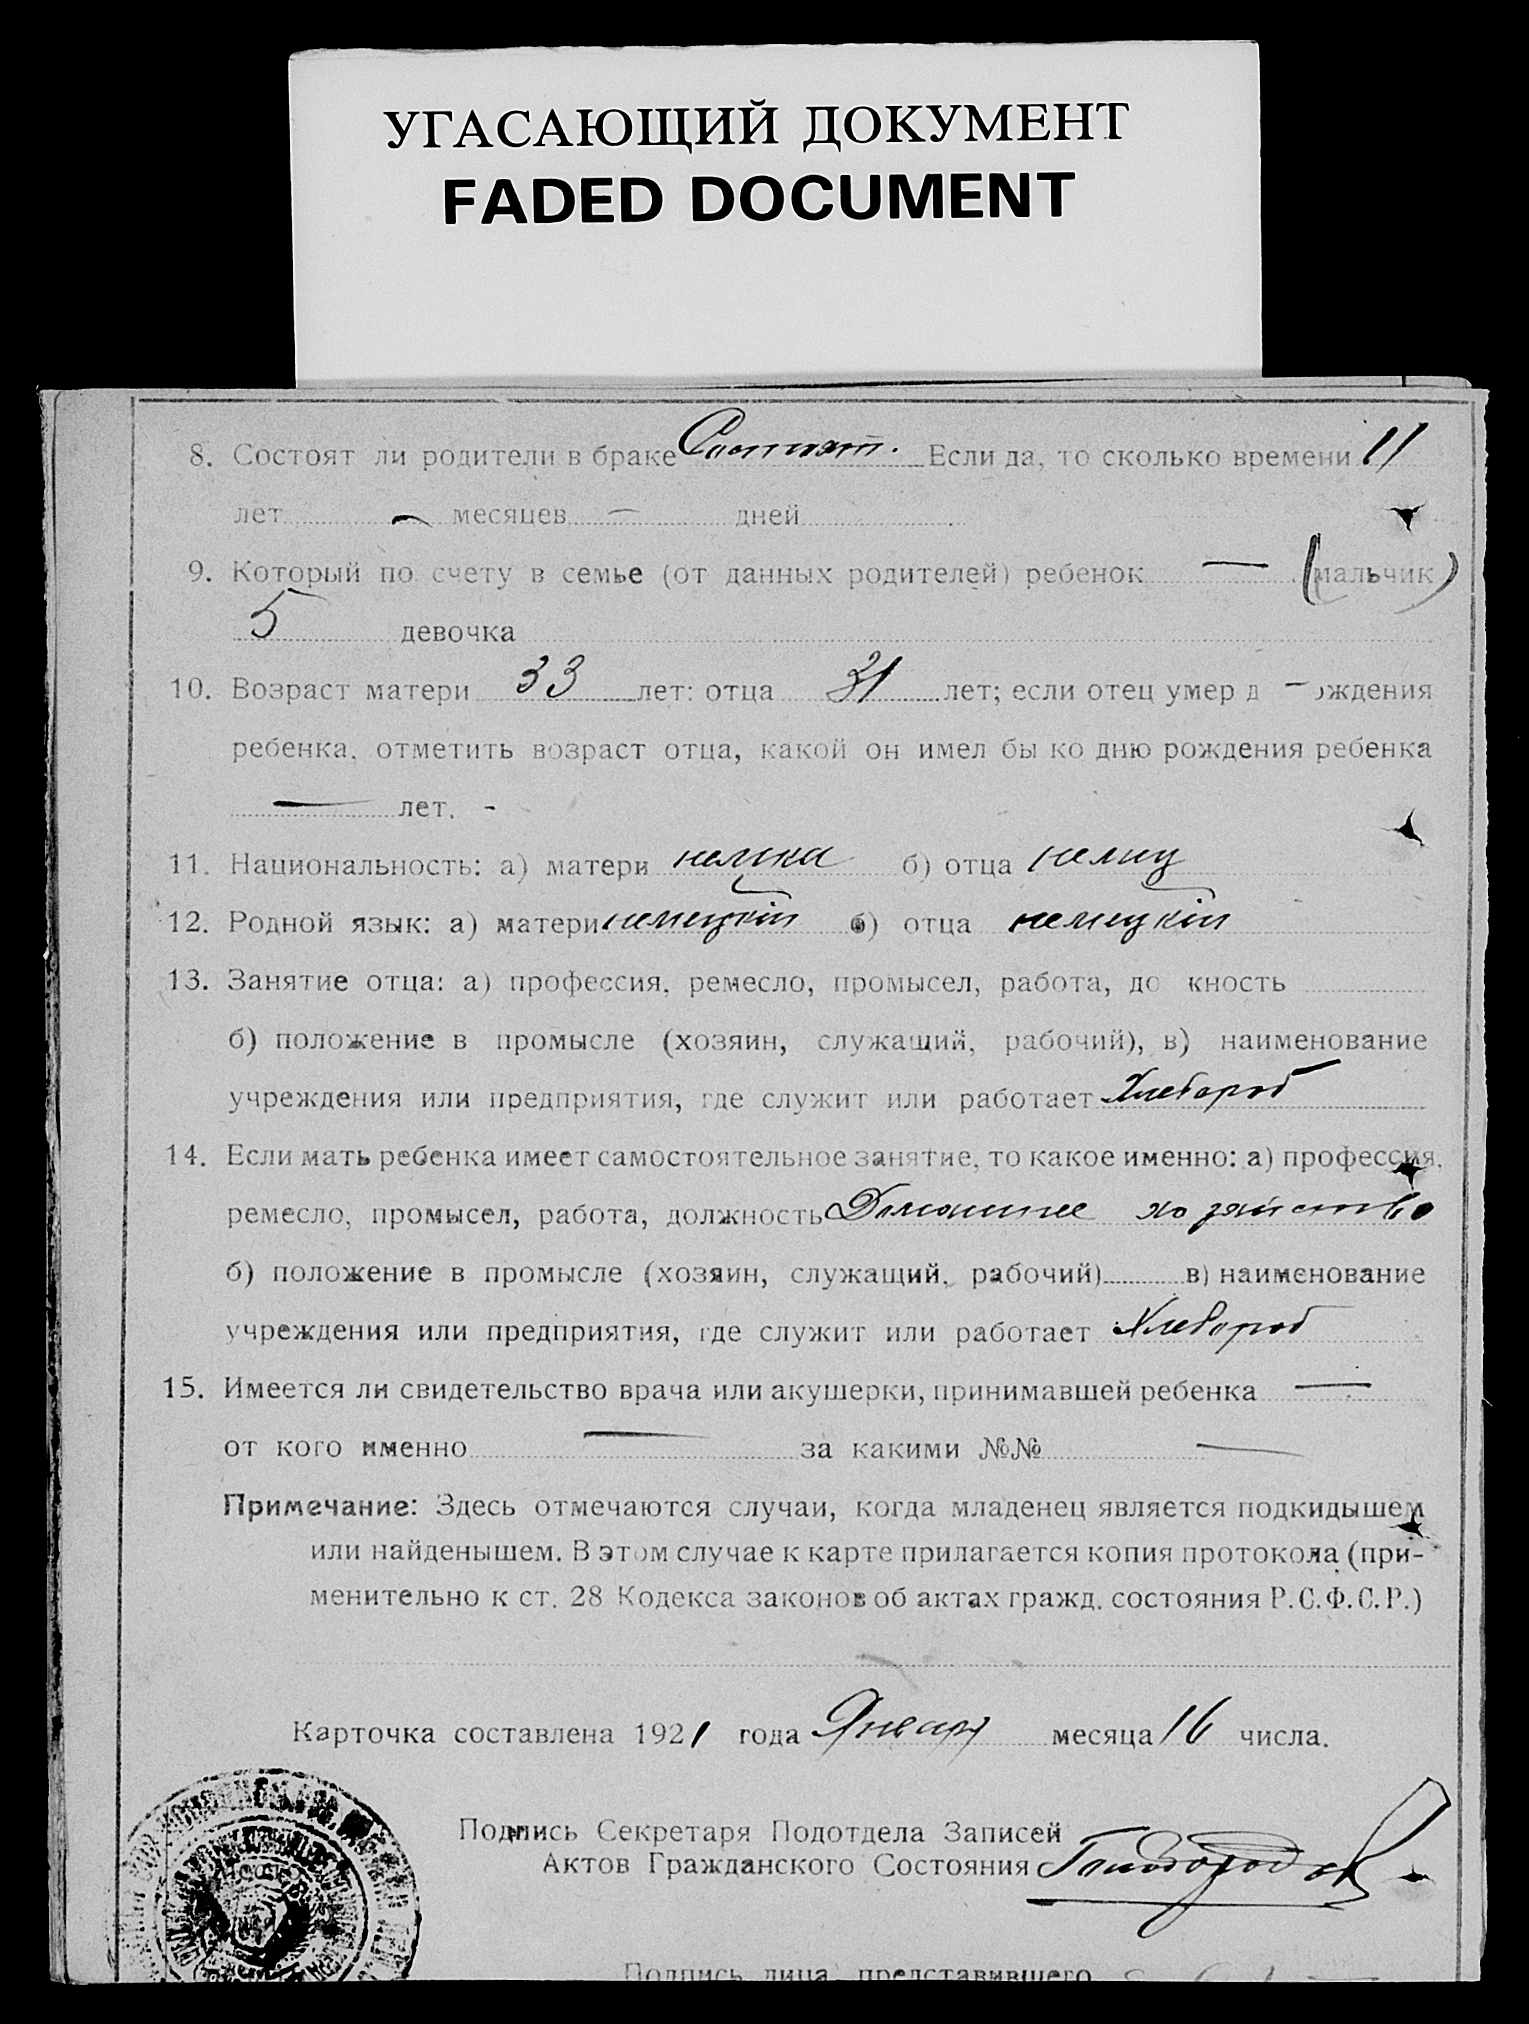 УГАСАЮЩИЙ ДОКУМЕНТ
FADED DOCUMENT
8. Состоят ли родители в браке Состоят. Если да, то сколько времени 11
лет — месяцев — дней
9. Который по счету в семье (от данных родителей) ребенок — (мальчик)
5 девочка
10. Возраст матери 33 лет: отца 31 лет; если отец умер д — ождения
ребенка, отметить возраст отца, какой он имел бы ко дню рождения ребенка
— лет. -
11. Национальность: а) матери немка б) отца немец
12. Родной язык: а) матери немецкій б) отца немецкій
13. Занятие отца: а) профессия, ремесло, промысел, работа, до кность
б) положение в промысле (хозяин, служащий, рабочий), в) наименование
учреждения или предприятия, где служит или работает Хлебороб
14. Если мать ребенка имеет самостоятельное занятие, то какое именно: а) профессия,
ремесло, промысел, работа, должность Домашнее хозяйство
б) положение в промысле (хозяин, служащий, рабочий) в) наименование
учреждения или предприятия, где служит или работает Хлебороб
15. Имеется ли свидетельство врача или акушерки, принимавшей ребенка —
от кого именно — за какими №№ —
Примечание: Здесь отмечаются случаи, когда младенец является подкидышем
или найденышем. В этом случае к карте прилагается копия протокола (при-
менительно к ст. 28 Кодекса законов об актах гражд. состояния Р.С.Ф.С.Р.)
Карточка составлена 1921 года Января месяца 16 числа.
Подпись Секретаря Подотдела Записей
Актов Гражданского Состояния
Подпись лица, представившего